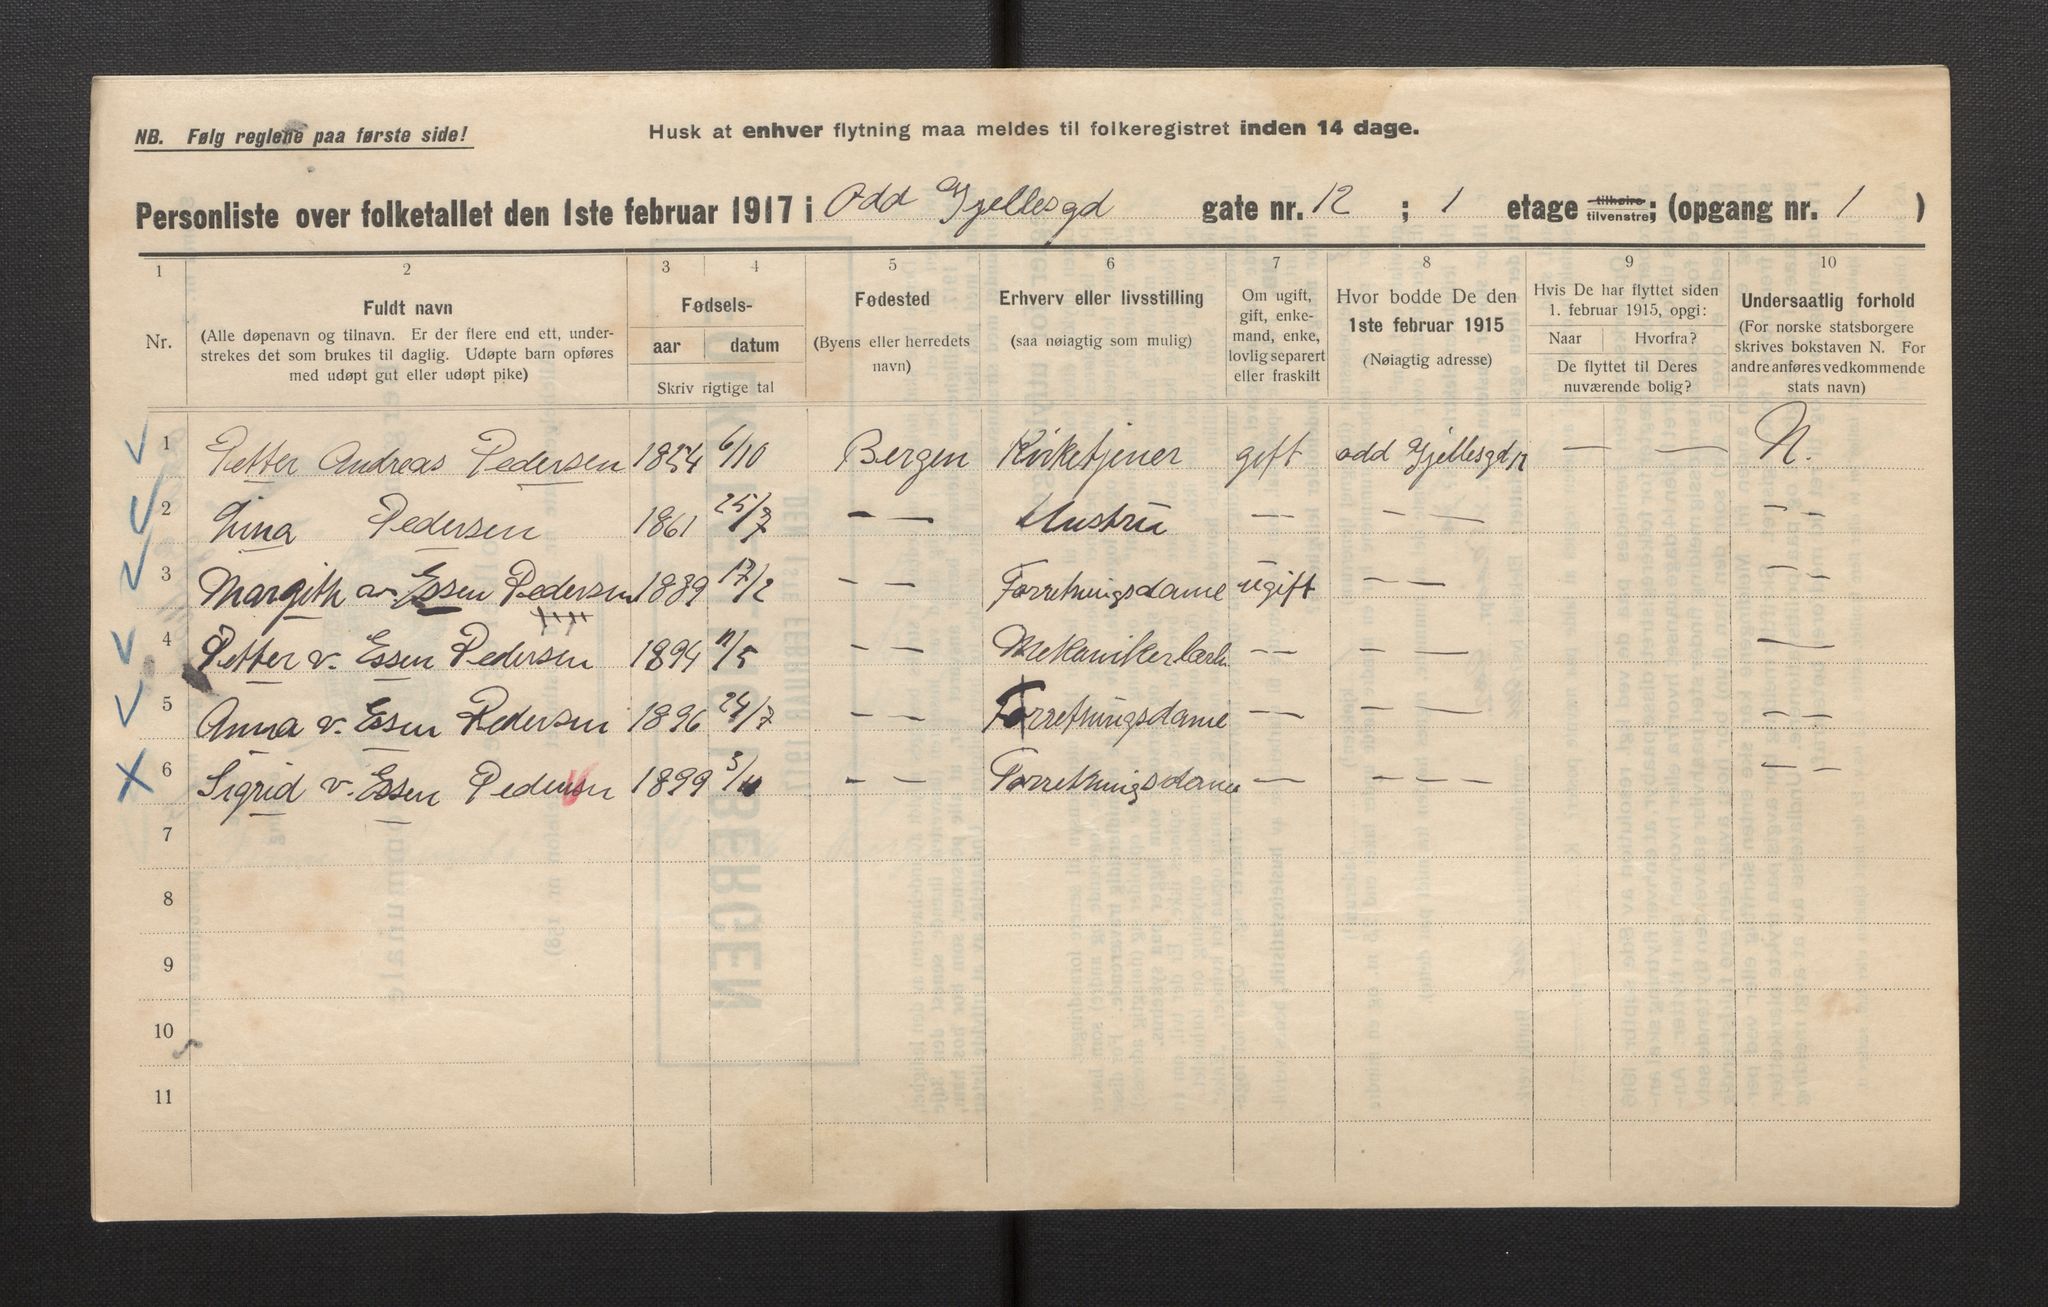 NB. Følg reglene paa første side!
Husk at enhver flytning maa meldes til folkeregistret inden 14 dage.
Personliste over folketallet den 1ste februar 1917 i Odd Gjellesgd gate nr. 12 ; 1 etage tilhøire tilvenstre; (opgang nr. 1 )
1 2 3 4 5 6 7 8 9 10
Nr.
Fuldt navn
(Alle døpenavn og tilnavn. Er der flere end ett, under-
strekes det som brukes til daglig. Udøpte barn opføres
med udøpt gut eller udøpt pike)
Fødsels-
aar datum
Skriv rigtige tal
Fødested
(Byens eller herredets
navn)
Erhverv eller livsstilling
(saa nøiagtig som mulig)
Om ugift,
gift, enke-
mand, enke,
lovlig separert
eller fraskilt
Hvor bodde De den
1ste februar 1915
(Nøiagtig adresse)
Hvis De har flyttet siden
1. februar 1915, opgi:
Naar Hvorfra?
De flyttet til Deres
nuværende bolig?
Undersaatlig forhold
(For norske statsborgere
skrives bokstaven N. For
andre anføres vedkommende
stats navn)
1 Petter Andreas Pedersen 1854 6/10 Bergen Kirketjener gift Odd Gjellesgd 12 — — N.
2 Lina Pedersen 1861 25/7 — — Hustru — — — — —
3 Margith av Essen Pedersen 1889 17/2 — — Forretningsdame ugift — — — —
4 Petter v. Essen Pedersen 1894 11/5 — — Mekanikerlærl. — — — — — —
5 Anna v. Essen Pedersen 1896 24/7 — — Forretningsdame — — — — — —
6 Sigrid v. Essen Pedersen 1899 3/11 — — Forretningsdame — — — — — —
7
8
9
10
11